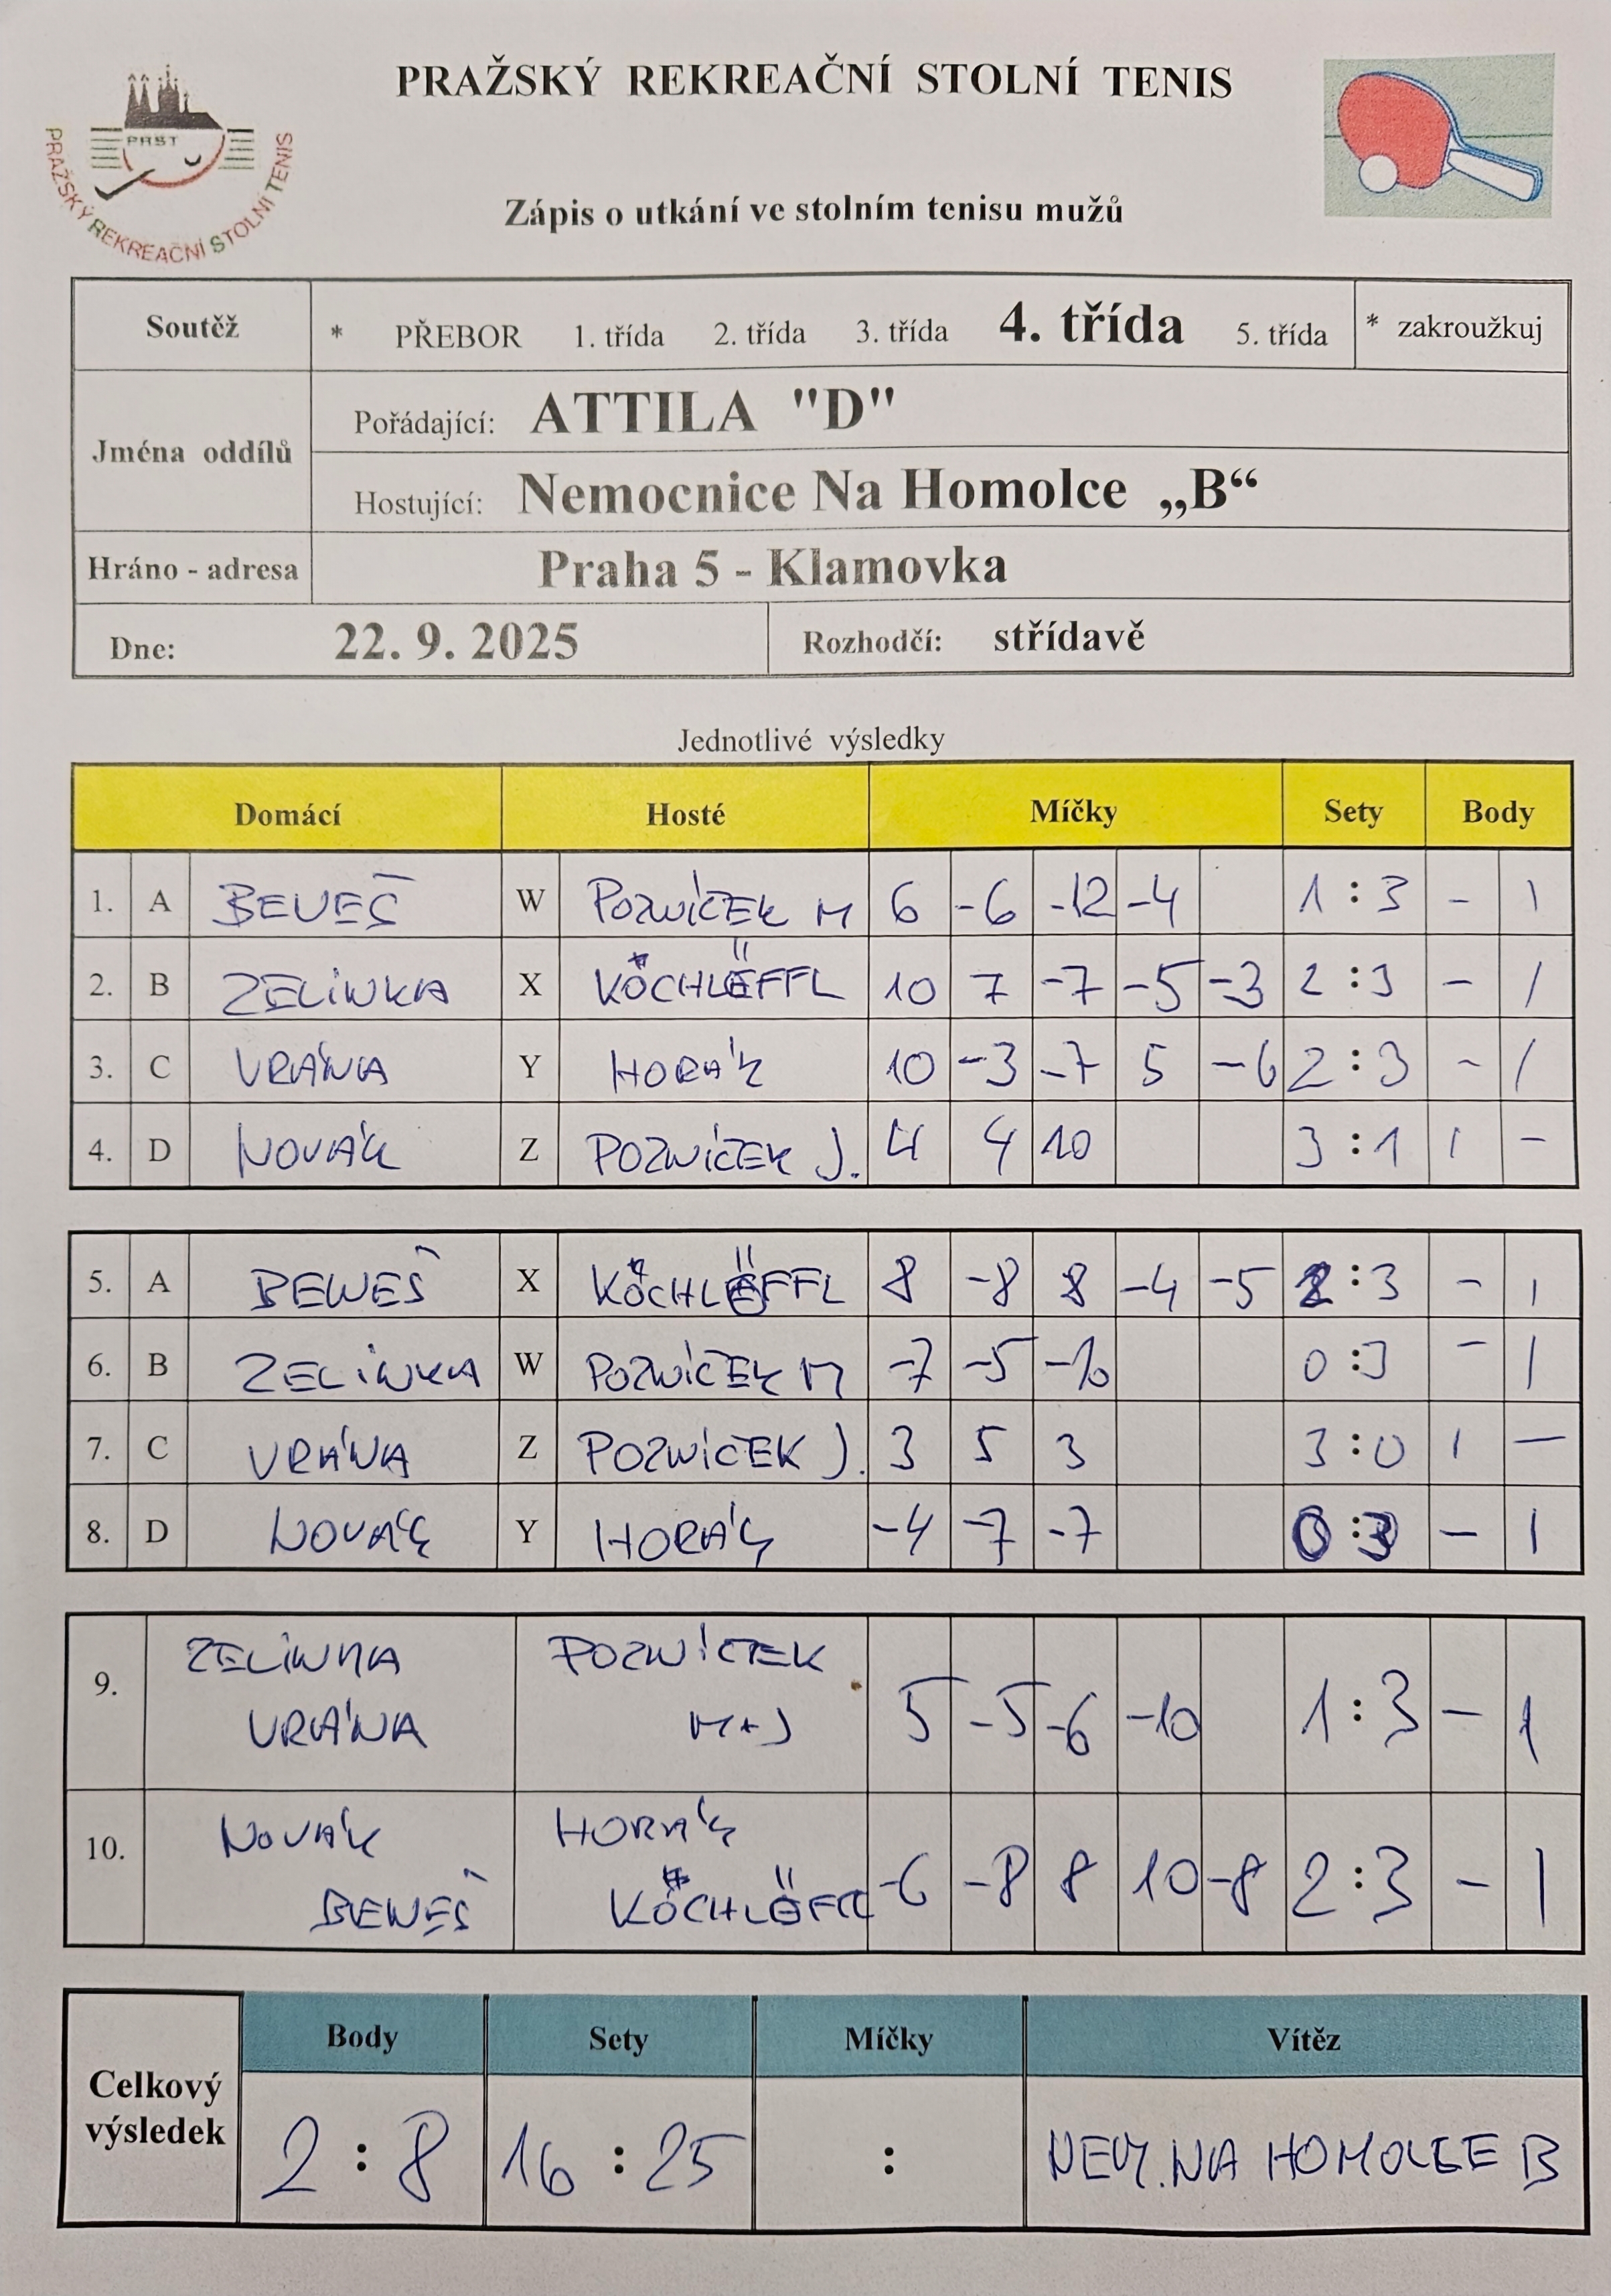 PRAŽSKÝ REKREAČNÍ STOLNÍ TENIS
PRST
PRAŽSKÝ REKREAČNÍ STOLNÍ TENIS
Zápis o utkání ve stolním tenisu mužů
Soutěž * PŘEBOR 1. třída 2. třída 3. třída 4. třída 5. třída * zakroužkuj
Jména oddílů
Pořádající: ATTILA "D"
Hostující: Nemocnice Na Homolce „B“
Hráno - adresa Praha 5 - Klamovka
Dne: 22. 9. 2025 Rozhodčí: střídavě
Jednotlivé výsledky
Domácí Hosté Míčky Sety Body
1. A BENEŠ W POZNÍČEK M 6 -6 -12 -4 1 : 3 - 1
2. B ZELINKA X KÖCHLÖFFL 10 7 -7 -5 -3 2 : 3 - 1
3. C VRÁNA Y HORÁK 10 -3 -7 5 -6 2 : 3 - 1
4. D NOVÁK Z POZNÍČEK J. 4 4 10 3 : 1 1 -
5. A BENEŠ X KÖCHLÖFFL 8 -8 8 -4 -5 2 : 3 - 1
6. B ZELINKA W POZNÍČEK M -7 -5 -10 0 : 3 - 1
7. C VRÁNA Z POZNÍČEK J. 3 5 3 3 : 0 1 -
8. D NOVÁK Y HORÁK -4 -7 -7 0 : 3 - 1
ZELINKA POZNÍČEK
9. 5 -5 -6 -10 1 : 3 - 1
VRÁNA M+J
NOVÁK HORÁK
10. -6 -8 8 10 -8 2 : 3 - 1
BENEŠ KÖCHLÖFFL
Body Sety Míčky Vítěz
Celkový výsledek 2 : 8 16 : 25 : NEM. NA HOMOLCE B